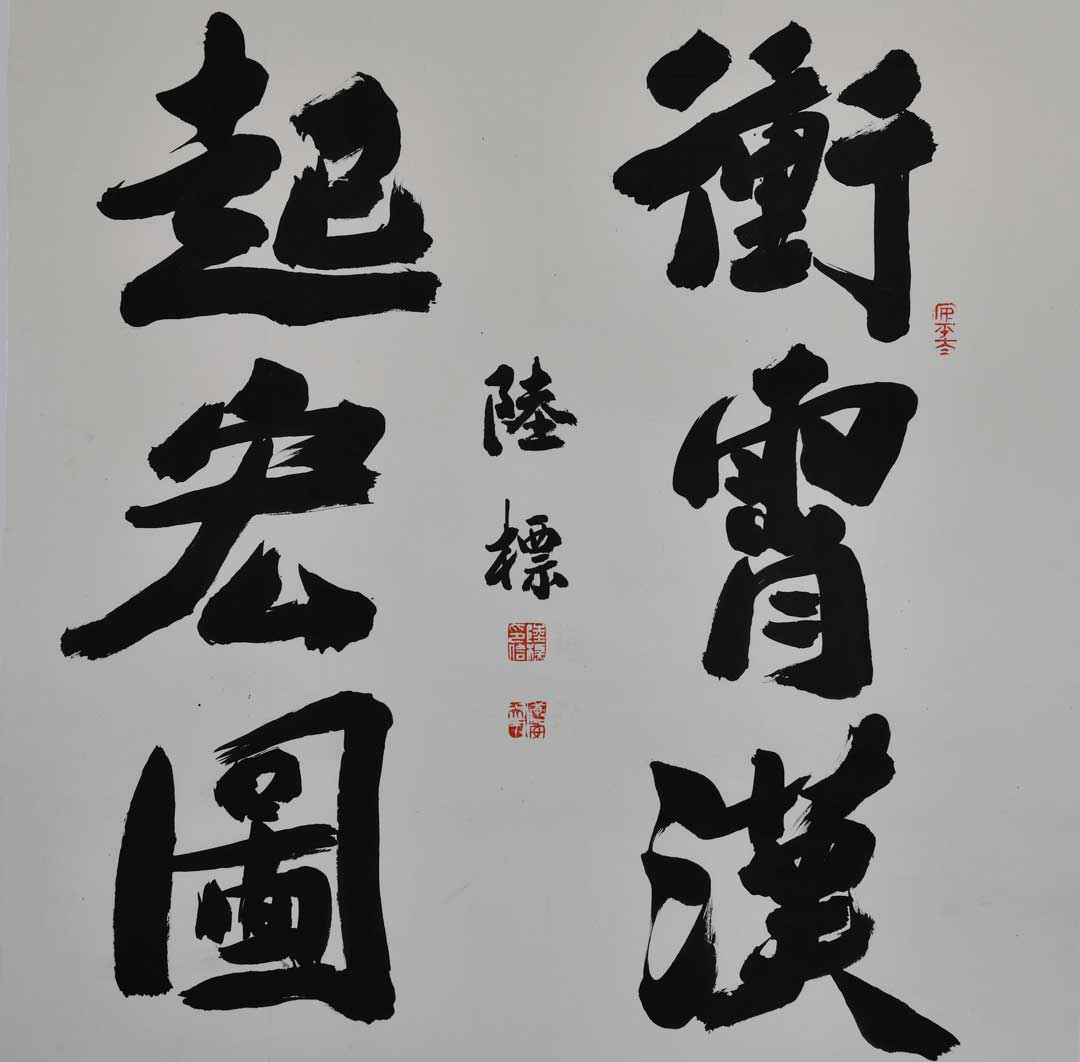 衝霄漢
起宏圖
陸標